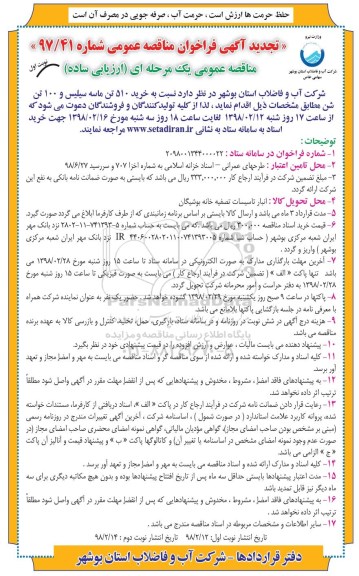 حفظ حرمت ها ارزش است ، حرمت آب ، صرفه جویی در مصرف آن است
« تجدید آگهی فراخوان مناقصه عمومی شماره ۹۷/۴۱ »
مناقصه عمومی یک مرحله ای (ارزیابی ساده)
نوبت اول
وزارت نیرو
شرکت آب و فاضلاب استان بوشهر
شرکت آب و فاضلاب استان بوشهر در نظر دارد نسبت به خرید ۵۱۰ تن ماسه سیلیس و ۱۰۰ تن
شن مطابق مشخصات ذیل اقدام نماید ، لذا از کلیه تولیدکنندگان و فروشندگان دعوت می شود که
از ساعت ۱۷ روز شنبه ۱۳۹۸/۰۲/۱۲ لغایت ساعت ۱۸ روز سه شنبه مورخ ۱۳۹۸/۰۲/۱۶ جهت خرید
اسناد به سامانه ستاد به نشانی www.setadiran.ir مراجعه نمایند.
توضیحات :
۱- شماره فراخوان در سامانه ستاد :
۲- محل تامین اعتبار : طرحهای عمرانی – اسناد خزانه اسلامی به شماره اخزا ۷۰۷ و سررسید ۹۸/۶/۲۷
۳- مبلغ تضمین شرکت در فرآیند ارجاع کار ۳۳۳,۰۰۰,۰۰۰ ریال می باشد که بایستی به صورت ضمانت نامه بانکی به نفع این
شرکت ارائه گردد.
۴- محل تحویل کالا : انبار تاسیسات تصفیه خانه بوشیگان
۵- مدت قرارداد ۳ ماه می باشد و ارسال کالا بایستی بر اساس برنامه زمانبندی که از طرف کارفرما ابلاغ می گردد صورت گیرد.
۶- قیمت خرید اسناد مناقصه ۳۰۰,۰۰۰ ریال می باشد که می بایست به حساب شماره
ایران شعبه مرکزی بوشهر ( حساب شبا شماره IR نزد بانک مهر ایران شعبه مرکزی
بوشهر ) واریز و گردد .
۷- آخرین مهلت بارگذاری مدارک به صورت الکترونیکی در سامانه ستاد تا ساعت ۱۵ روز شنبه مورخ ۱۳۹۸/۰۲/۲۸ می
باشد تنها پاکت « الف » ( تضمین شرکت در فرآیند ارجاع کار ) می بایست به صورت فیزیکی تا ساعت ۱۵ روز شنبه مورخ
۱۳۹۸/۰۲/۲۸ به دفتر حراست و امور محرمانه شرکت تحویل گردد.
۸- پاکتها در ساعت ۹ صبح روز یکشنبه مورخ ۱۳۹۸/۰۲/۲۹ گشوده خواهد شد. حضور یک نفر به عنوان نماینده شرکت همراه
با معرفی نامه در جلسه بازگشایی پاکتها بلامانع می باشد.
۹- هزینه درج آگهی در شش نوبت در روزنامه و در سامانه ستاد، بارگیری، حمل، تخلیه، کنترل و بازرسی کالا به عهده برنده
مناقصه می باشد.
۱۰- پیشنهاد دهنده می بایست مالیات ، عوارض و ارزش افزوده را در قیمت پیشنهادی خود در نظر بگیرد.
۱۱- کلیه اسناد و مدارک خواسته شده و ارائه شده از سوی مناقصه گر و اسناد مناقصه می بایست به مهر و امضا مجاز و تعهد
آور برسد.
۱۲- به پیشنهادهای فاقد امضا ، مشروط ، مخدوش و پیشنهادهایی که پس از انقضا مهلت مقرر در آگهی واصل شود مطلقاً
ترتیب اثر داده نخواهد شد.
۱۳- رعایت قرار دادن ضمانت نامه شرکت در فرآیند ارجاع کار در پاکت « الف »، اسناد دریافتی از کارفرما، مستندات خواسته
شده، پروانه کاربرد علامت استاندارد ( در صورت شمول ) ، اساسنامه شرکت ، آخرین آگهی تغییرات مندرج در روزنامه رسمی
(مبنی بر مشخص بودن صاحب امضای مجاز)، گواهی مودیان مالیاتی، گواهی نمونه امضای محضری صاحب امضای مجاز (در
صورت عدم وجود نمونه امضای مشخص در اساسنامه یا تغییر آن) و کاتالوگها پاکت « ب » و پیشنهاد قیمت و آنالیز آن پاکت
« ج » الزامی می باشد.
۱۴- کلیه اسناد و مدارک ارائه شده و اسناد مناقصه می بایست به مهر و امضا مجاز و تعهد آور برسد .
۱۵- مدت اعتبار پیشنهادها بایستی حداقل سه ماه پس از تاریخ افتتاح پیشنهادها بوده و بدون هیچ مکاتبه دیگری برای سه
ماه دیگر نیز قابل تمدید باشد.
۱۶- به پیشنهادهای فاقد امضا ، مشروط ، مخدوش و پیشنهادهایی که پس از انقضا مهلت مقرر در آگهی واصل شود مطلقاً
ترتیب اثر داده نخواهد شد.
۱۷- سایر اطلاعات و مشخصات مربوطه در اسناد مناقصه مندرج می باشد .
تاریخ انتشار نوبت اول: ۹۸/۲/۱۲ تاریخ انتشار نوبت دوم : ۹۸/۲/۱۴
دفتر قراردادها – شرکت آب و فاضلاب استان بوشهر